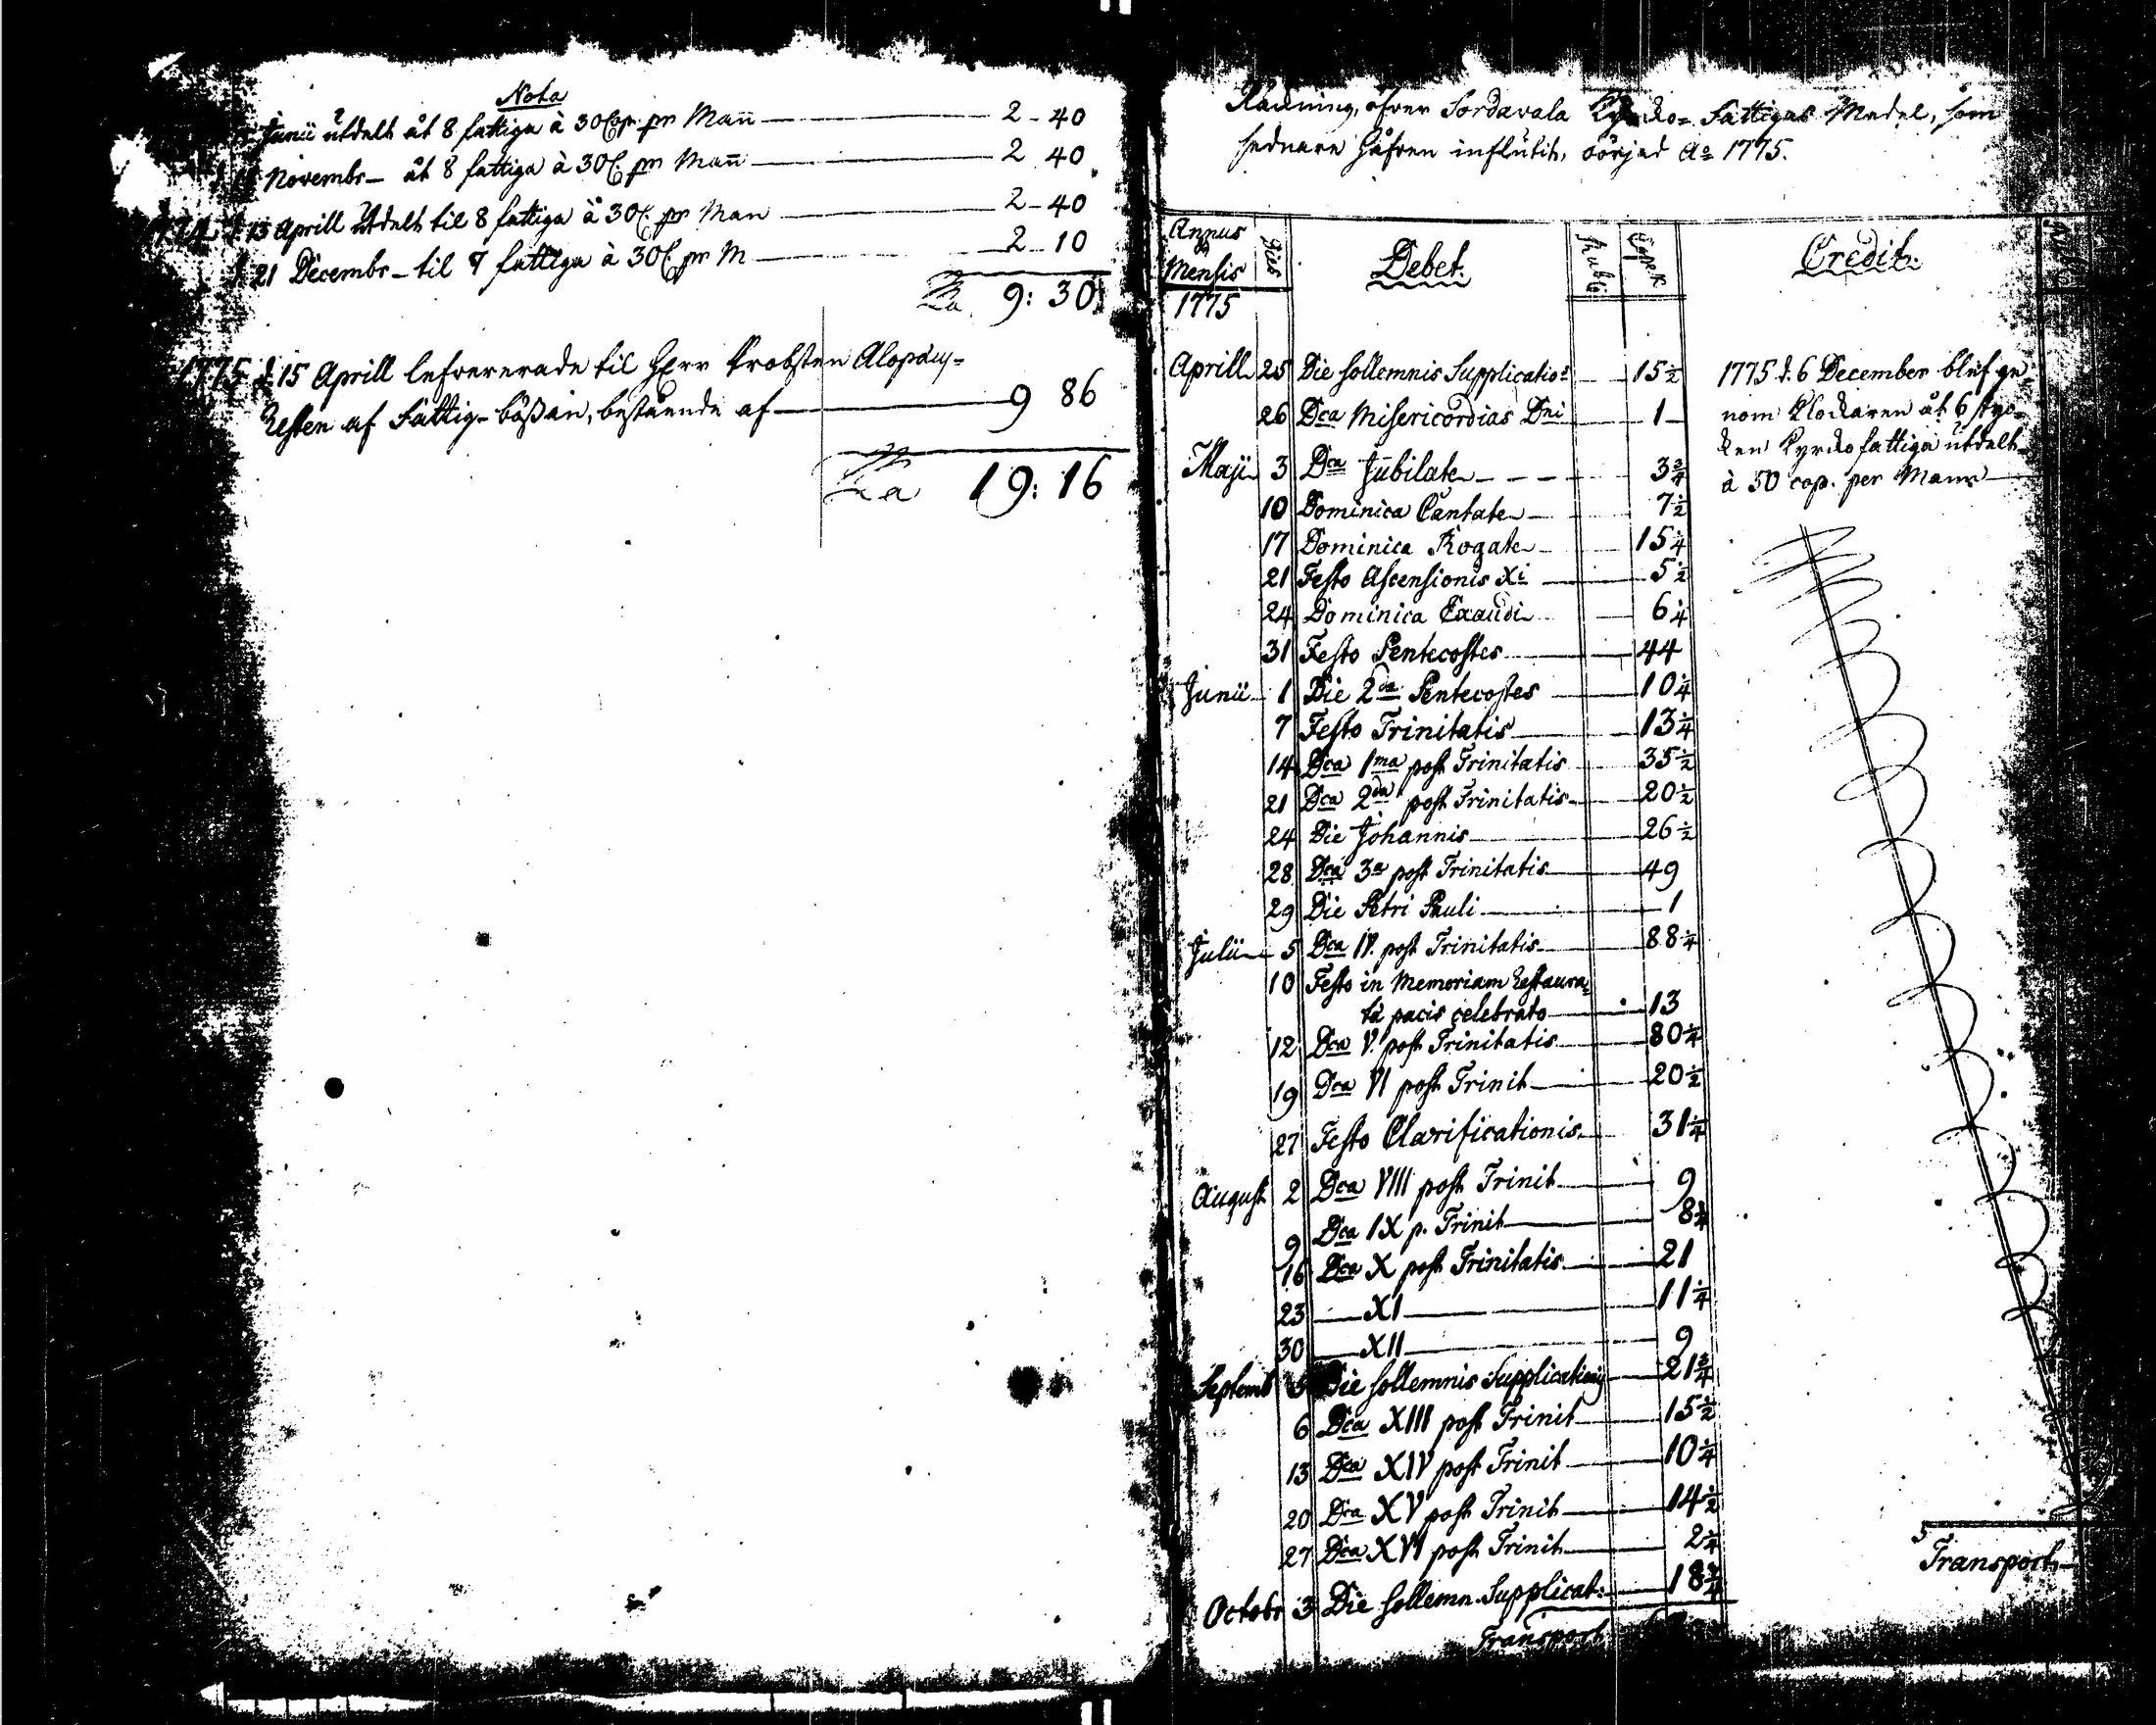 Nota
Junii utdelt åt 8 fattiga à 30 Cop. pr Man̄ 2-40
Novembr- åt 8 fattiga à 30 C. pr Man̄ 2 40
13 Aprill utdelt til 8 fattiga à 30 C. pr Man 2-40
21 Decembr- til 7 fattiga à 30 C. pr M 2-10
9: 30
1775 d. 15 Aprill lefvererade til Herr Probsten Alopæus-
Resten af Fattig-bössan, bestående af 9 86
19: 16
Räkning öfver Sordavala Kyrko- Fattigas Medel, som
sednare håfven influtit, börjad Ao 1775.
Annus & Mensis Dies Debet. Rubl. Copek Credit.
1775
Aprill 25 Die sollemnis Supplicatio: 15 1/2
26 Dca Misericordias Dni 1
Maji 3 Dca Jubilate 3 3/4
10 Dominica Cantate 7 1/2
17 Dominica Rogate 15 1/4
21 Festo Ascensionis Xi 5 1/2
24 Dominica Exaudi 6 1/4
31 Festo Pentecostes 44
Junii 1 Die 2da Pentecostes 10 1/4
7 Festo Trinitatis 13 1/4
14 Dca 1ma post Trinitatis 35 1/2
21 Dca 2da post Trinitatis 20 1/2
24 Die Johannis 26 1/2
28 Dca 3a post Trinitatis 49
29 Die Petri Pauli 1
Julii 5 Dca IV. post Trinitatis 88 1/4
10 Festo in Memoriam Restaura=
tæ pacis celebrato 13
12 Dca V. post Trinitatis 80 1/4
19 Dca VI post Trinit 20 1/2
27 Festo Clarificationis 31 1/4
August 2 Dca VIII post Trinit 9
9 Dca IX p. Trinit 8 1/4
16 Dca X post Trinitatis 21
23 XI 11 1/4
30 XII 9
Septemb 5 Die sollemnis Supplicationis 21 3/4
6 Dca XIII post Trinit 15 1/2
13 Dca XIV post Trinit 10 1/4
20 Dca XV post Trinit 14 1/2
27 Dca XVI post Trinit 2 1/4
Octobr 3 Die sollemn. Supplicat: 18 3/4
Transport
1775 d. 6 December blef ge=
nom Klockaren åt 6 styc=
ken Kyrko fattiga utdelt
à 50 cop. per Mann
Transport